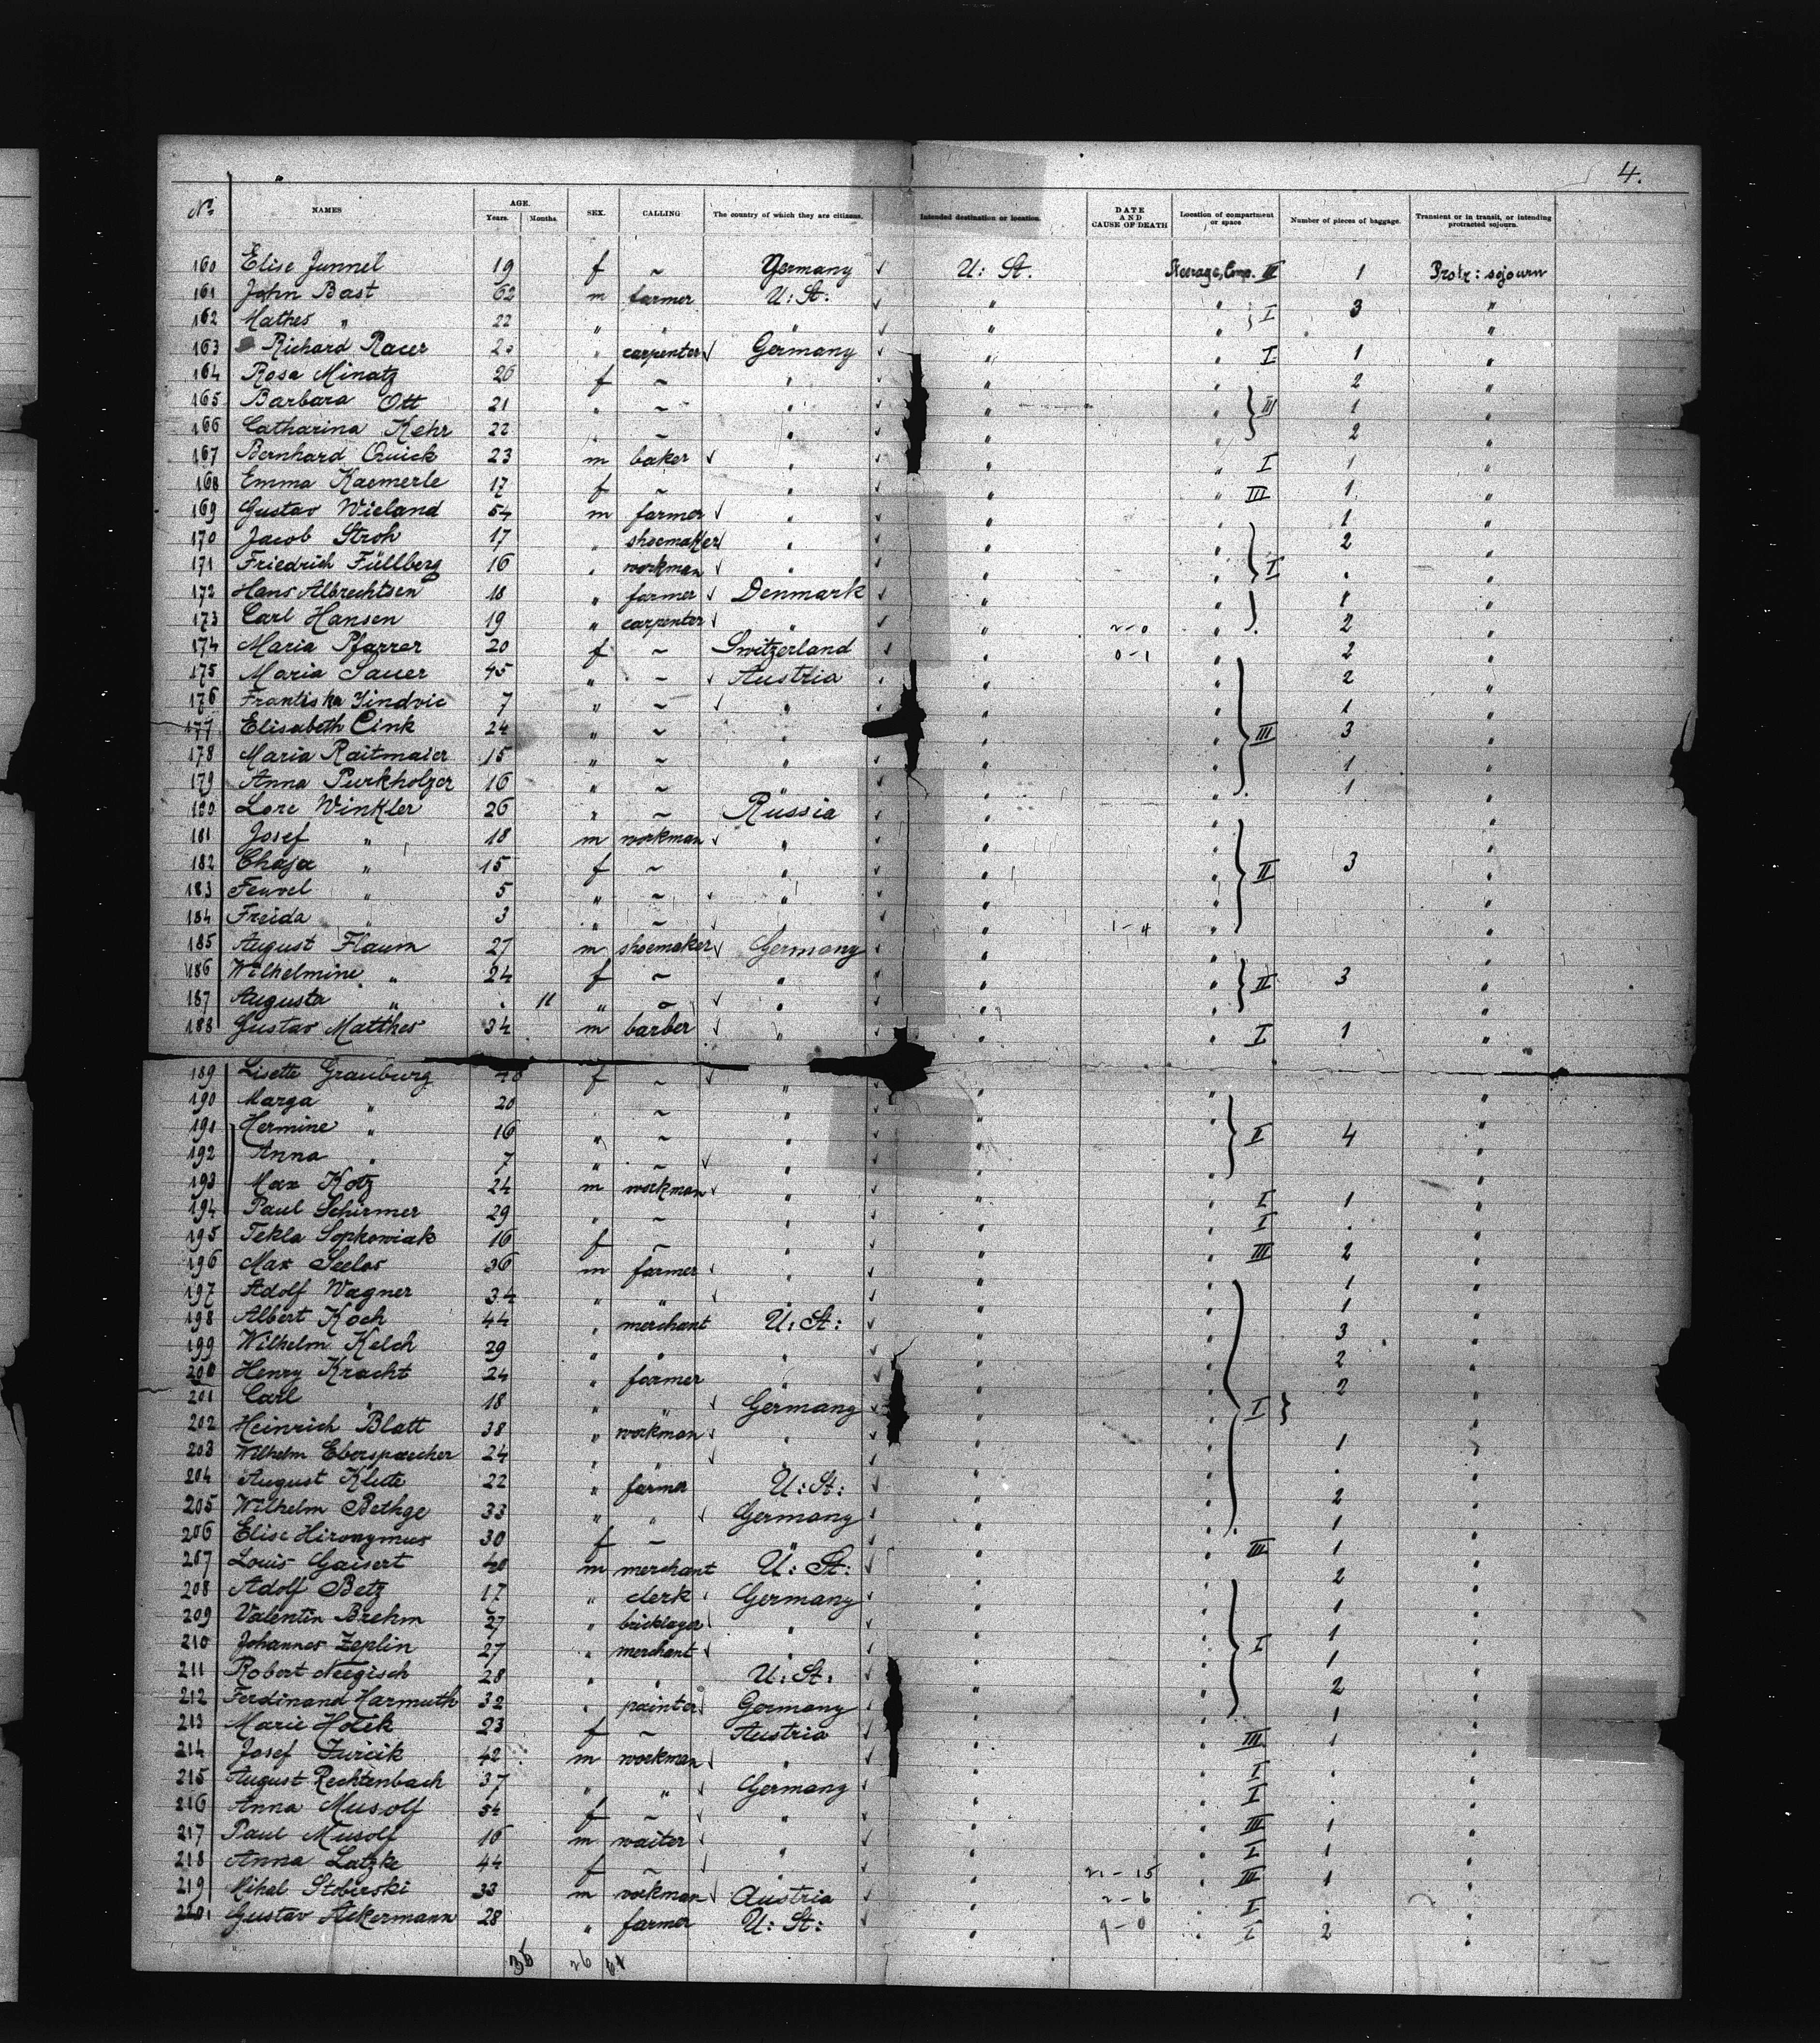 4.
No. NAMES AGE. Years. Months. SEX. CALLING The country of which they are citizens. Intended destination or location. DATE AND CAUSE OF DEATH Location of compartment or space Number of pieces of baggage. Transient or in transit, or intending protracted sojourn.
160 Elise Junnel 19 f ~ Germany ✓ U: St. Steerage, Comp. III 1 Protr: sojourn
161 John Bast 62 m farmer U: St: ✓ " " } I 3 "
162 Mathes " 22 " " " ✓ " " "
163 Richard Racer carpenter ✓ Germany ✓ " " I 1 "
164 Rosa Minatz 26 f ~ " ✓ " " 2 "
165 Barbara Ott 21 " ~ " ✓ " " } III 1 "
166 Catharina Kehr 22 " ~ " ✓ " " 2 "
167 Bernhard Quick 23 m baker ✓ " ✓ " " I 1 "
168 Emma Kaemerle 17 f ~ " ✓ " " III 1 "
169 Gustav Wieland 54 m farmer ✓ " ✓ " " 1 "
170 Jacob Stroh 17 " shoemaker ✓ " ✓ " " 2 "
171 Friedrich Füllberg 16 " workman ✓ " ✓ " " } I . "
172 Hans Albrechtsen 18 " farmer ✓ Denmark ✓ " " 1 "
173 Carl Hansen 19 " carpenter ✓ " ✓ " 2-0 " } 2 "
174 Maria Pfarrer 20 f ~ Switzerland ✓ " 0-1 " 2 "
175 Maria Sauer 45 " ~ ✓ Austria " " 2 "
176 Frantiska Jindvic 7 " ~ ✓ " " " 1 "
177 Elisabeth Cink 24 " ~ " " " } III 3 "
178 Maria Raitmaier 15 " ~ " ✓ " " 1 "
179 Anna Purkholzer 16 " ~ " ✓ " " 1 "
180 Lore Winkler 26 " ~ Russia ✓ " " "
181 Josef " 18 m workman ✓ " ✓ " " "
182 Chaja " 15 f ~ " ✓ " " } II 3 "
183 Feuvel " 5 " ~ ✓ " ✓ " " "
184 Freida " 3 " ~ ✓ " 1-4 " "
185 August Flaum 27 m shoemaker ✓ Germany ✓ " " "
186 Wilhelmine " 24 f ~ " ✓ " " } II 3 "
187 Augusta " . 11 " ~ ✓ " ✓ " " "
188 Gustav Matthes 34 m barber ✓ " ✓ " " I 1 "
189 Lisette Grauburg f ~ ✓ " ✓ " " "
190 Marga " 20 " ~ " ✓ " " "
191 Hermine " 16 " ~ " ✓ " " } II 4 "
192 Anna " 7 " ~ ✓ " ✓ " " "
193 Max Kotz 24 m workman ✓ " ✓ " " I 1 "
194 Paul Schirmer 29 " ~ " ✓ " " I . "
195 Tekla Sopkowiak 16 f ~ " ✓ " " III 2 "
196 Max Seelos 36 m farmer ✓ " ✓ " " 1 "
197 Adolf Wagner 34 " " ✓ " ✓ " " 1 "
198 Albert Koch 44 " merchant U: St: ✓ " " 3 "
199 Wilhelm Kelch 29 " " " ✓ " " 2 "
200 Henry Kracht 24 " farmer " " " 2 "
201 Carl " 18 " " ✓ Germany ✓ " " } I } "
202 Heinrich Blatt 38 " workman ✓ " ✓ " " 1 "
203 Wilhelm Eberspaecher 24 " " ✓ " ✓ " " . "
204 August Klute 22 " farmer U: St: ✓ " " 2 "
205 Wilhelm Bethge 33 " " ✓ Germany ✓ " " 1 "
206 Elise Hironymus 30 f ~ " ✓ " " III 1 "
207 Louis Gaisert 40 m merchant U: St: ✓ " " 2 "
208 Adolf Betz 17 " clerk ✓ Germany ✓ " " 1 "
209 Valentin Brehm 27 " bricklayer ✓ " ✓ " " 1 "
210 Johannes Zeplin 27 " merchant ✓ " ✓ " " } I 1 "
211 Robert Neegisch 28 " " U: St: ✓ " " 2 "
212 Ferdinand Harmuth 32 " painter ✓ Germany ✓ " " 1 "
213 Marie Holek 23 f ~ Austria ✓ " " III 1 "
214 Josef Jurcik 42 m workman ✓ " ✓ " " I . "
215 August Rechtenbach 37 " " ✓ Germany ✓ " " I . "
216 Anna Musolf 54 f ~ ✓ " ✓ " " III 1 "
217 Paul Musolf 16 m waiter ✓ " ✓ " " I 1 "
218 Anna Latzke 44 f ~ ✓ " ✓ " 21-15 " III 1 "
219 Mihal Stobirski 33 m workman ✓ Austria ✓ " 2-6 " I . "
220 Gustav Ackermann 28 " farmer U: St: " 9-0 " I 2 "
26